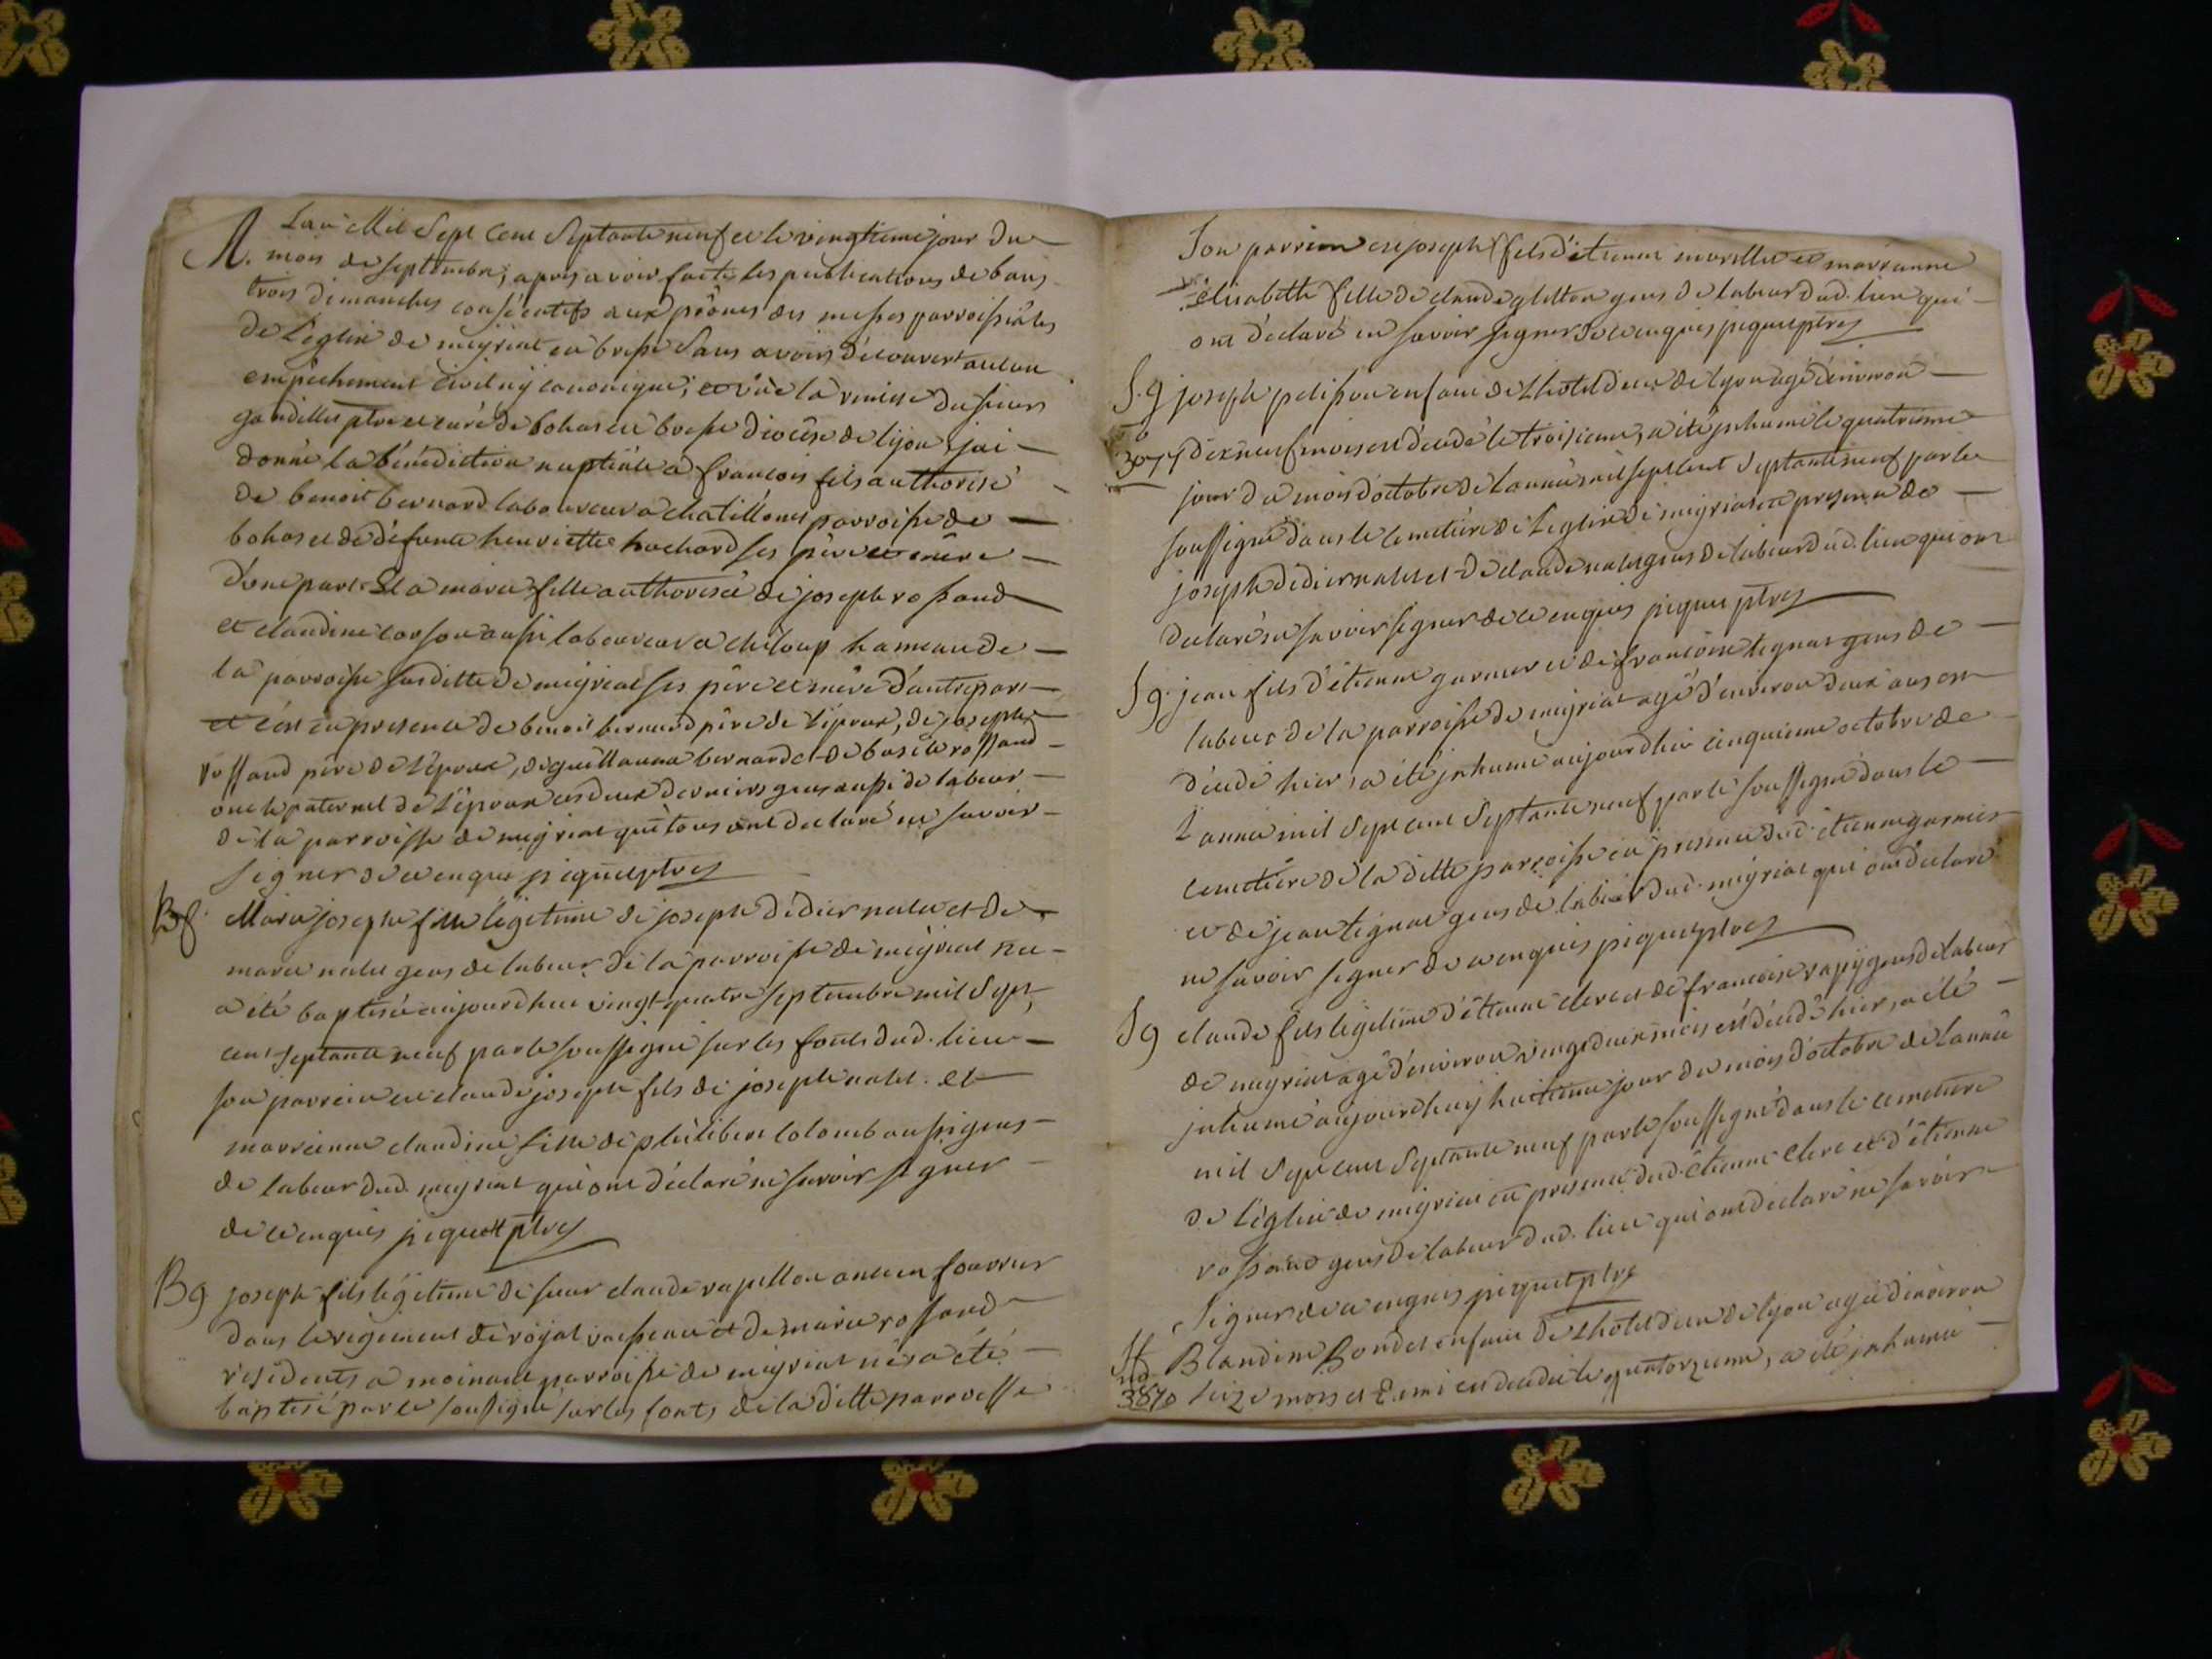 M. Lan Mil Sept Cent Septante neuf et le vingtieme jour du
mois de septembre, apres avoir faite les publications de bans
trois dimanches consécutifs aux prônes des messes parroissiales
de L'eglise de meyriat en bresse sans avoir découvert aucun
empêchement civil ny canonique; et vüe la remise du sieur
gondillet ptre et curé de bohas en bresse diocêse de lyon j'ai
donné la bénédiction nuptiale a francois fils authorisé
de benoit bernard laboureur a chatillonet parroisse de
bohas et de défunte henriette hochard ses père et mêre
d'une part. Et a marie fille authorisée de joseph rossand
et claudine corson aussi laboureur a chiloup hameau de
la parroisse susditte de meyriat ses père et mère d'autrepart
et c'est en presence de benoit bernard père de l'époux, de joseph
rossand père de L'épouse, de guillaume bernard et de basile rossand
oncle paternel de l'épouse ces deux derniers gens aussi de labeur
de la parroisse de meyriat qui tous ont declaré ne savoir
signer de ce enquis piquet ptre
Bf. Marie joseph fille légitime de joseph didier nalet et de
marie nalet gens de labeur de la parroisse de meyriat née
a été baptisée aujourdhui vingt quatre septembre mil sept
cent septante neuf par le soussigné sur les fonts dud. lieu
son parrein est claude joseph fils de joseph nalet. et
marreinne claudine fille de philibert colomb aussi gens
de labeur dud. meyriat qui ont déclaré ne savoir signer
de ce enquis piquet ptre
Bg joseph fils légitime de sieur claude rapillon ancien fourrier
dans le regiment de royal vaisseau et de marie rossand
résidents a moinans parroisse de meyriat né a été
baptisé par le soussigné sur les fonts de la ditte parroisse
Son parrein est joseph fils d'étienne morellet et marrainne
élisabette fille de claude gletton gens de labeur dud. lieu qui
ont déclaré ne savoir signer de ce enquis piquet ptre
Sg joseph pelisson enfant de Lhotel dieu de lyon agé denviron
dix neuf mois est décedé le troisieme, a été inhumé le quatrieme
jour du mois d'octobre de L'année mil sept cent septante neuf par le
soussigné dans le cemetière de L'eglise de meyriat en presence de
joseph didier nalet et de claude nalet gens de labeur dud. lieu qui ont
declaré ne savoir signer de ce enquis piquet ptre
Sg. jean fils d'étienne garnier et de francoise tignat gens de
labeur de la parroisse de meyriat agé d'environ deux ans est
décedé hier, a été inhumé aujourdhui cinquieme octobre de
L'année mil sept cent septante neuf par le soussigné dans le
cemetière de la ditte parroisse en presence dud. étienne garnier
et de jean tignat gens de labeur dud. meyriat qui ont declaré
ne savoir signer de ce enquis piquet ptre
Sg claude fils légitime d'étienne clerc et de francoise rapÿ gens de labeur
de meyriat agé d'environ vingt deux mois est décedé hier, a été
inhumé aujourdhuy huitieme jour du mois d'octobre de L'année
mil sept cent septante neuf par le soussigné dans le cemetière
de l'église de meyriat en presence dud. étienne Clerc et d'étienne
rossand gens de labeur dud. lieu qui ont declaré ne savoir
signer de ce enquis piquet ptre
Sf Blandine Bondet enfant de Lhotel dieu de lyon agée denviron
3870 seize mois et demi est decedée le quatorzieme, a été inhumé